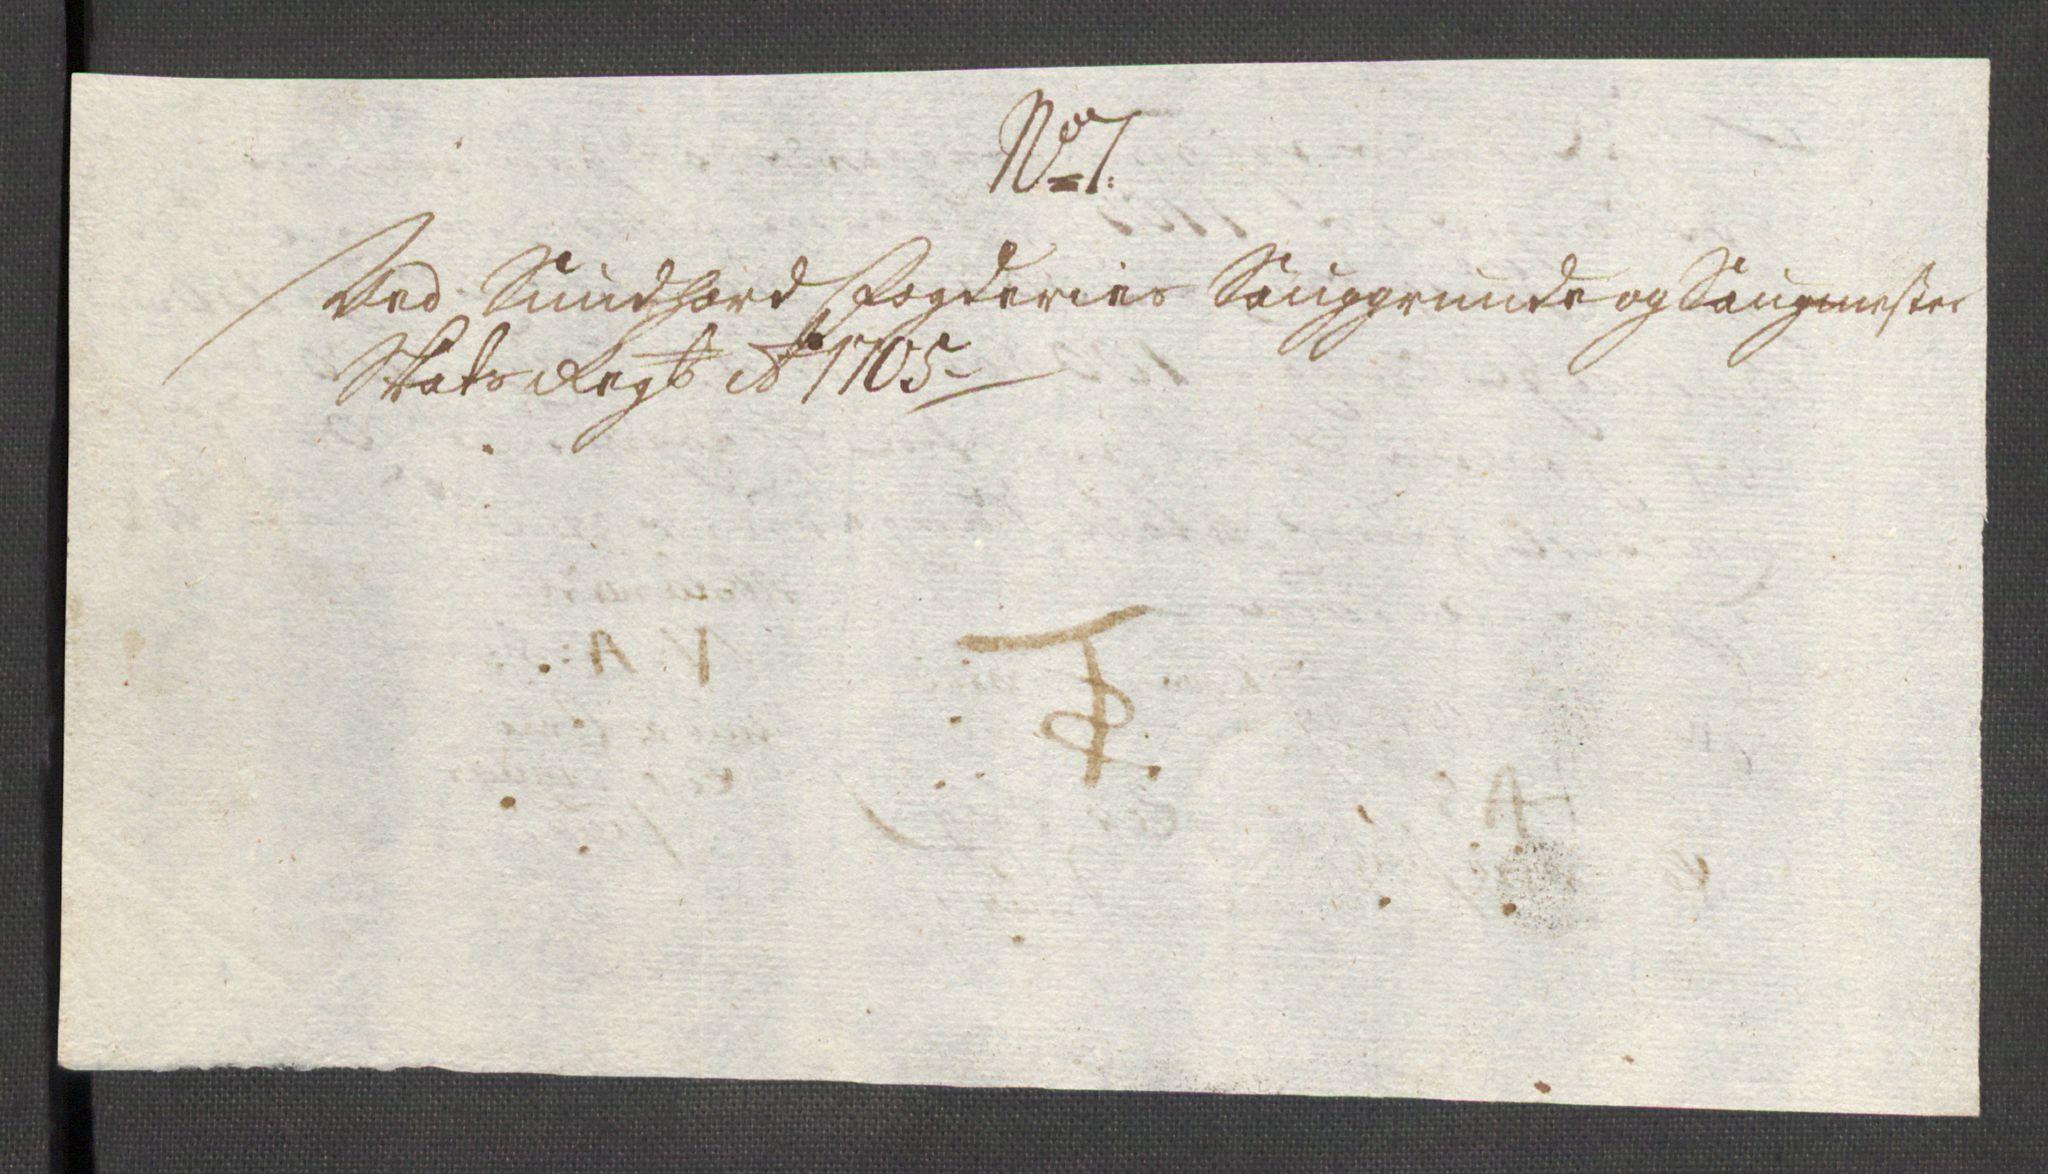 No 7.
Ved Sundhord fogderies Sauggrunde og Saugmester
Skats Regsb Ao 1705